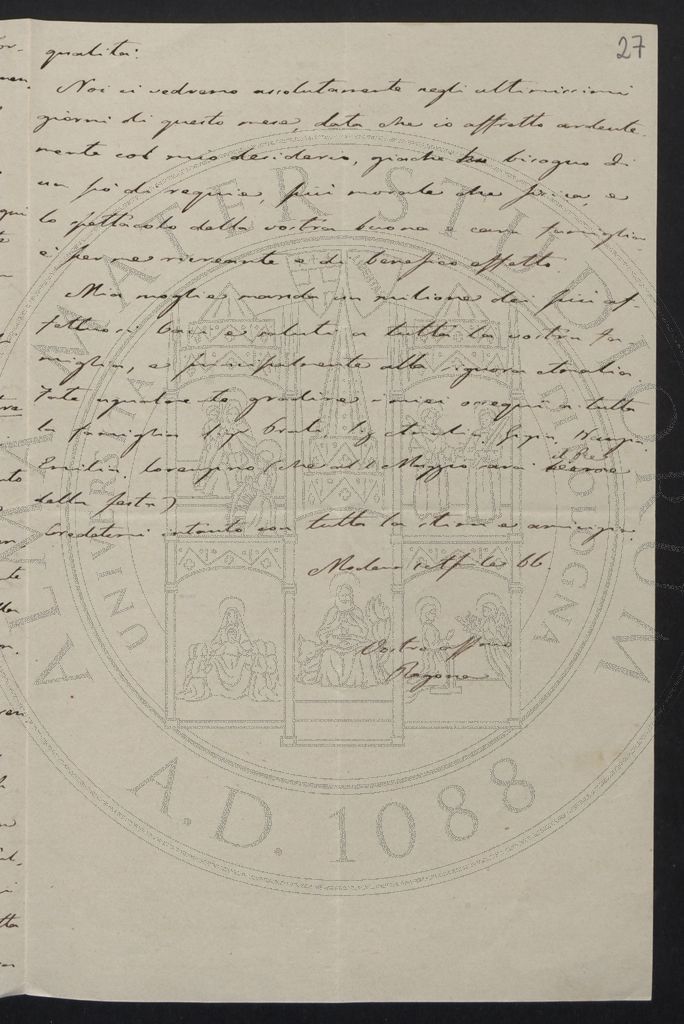 27
qualità.
Noi ci vedremo assolutamente negli ultimissimi
giorni di questo mese, data che io affretto ardente-
mente col mio desiderio, giacchè ho bisogno di
un pò di requie, più morale che fisica, e
lo spettacolo della vostra buona e cara famiglia,
è per me ricreante e di benefico effetto.
Mia moglie manda un milione dei più af-
fettuosi baci e saluti a tutta la vostra fa-
miglia, e principalmente alla signora
Fate ugualmente gradire i miei ossequi a tutta
la famiglia
Emilia, Lorenzino (che al 1 Maggio sarà il Re
della festa)
Credetemi intanto con tutta la stima e amicizia
Modena Aprile 66.
Vostro affmo
Ragona
ALMA MATER STUDIORUM
UNIVERSITÀ DI BOLOGNA
A.D. 1088